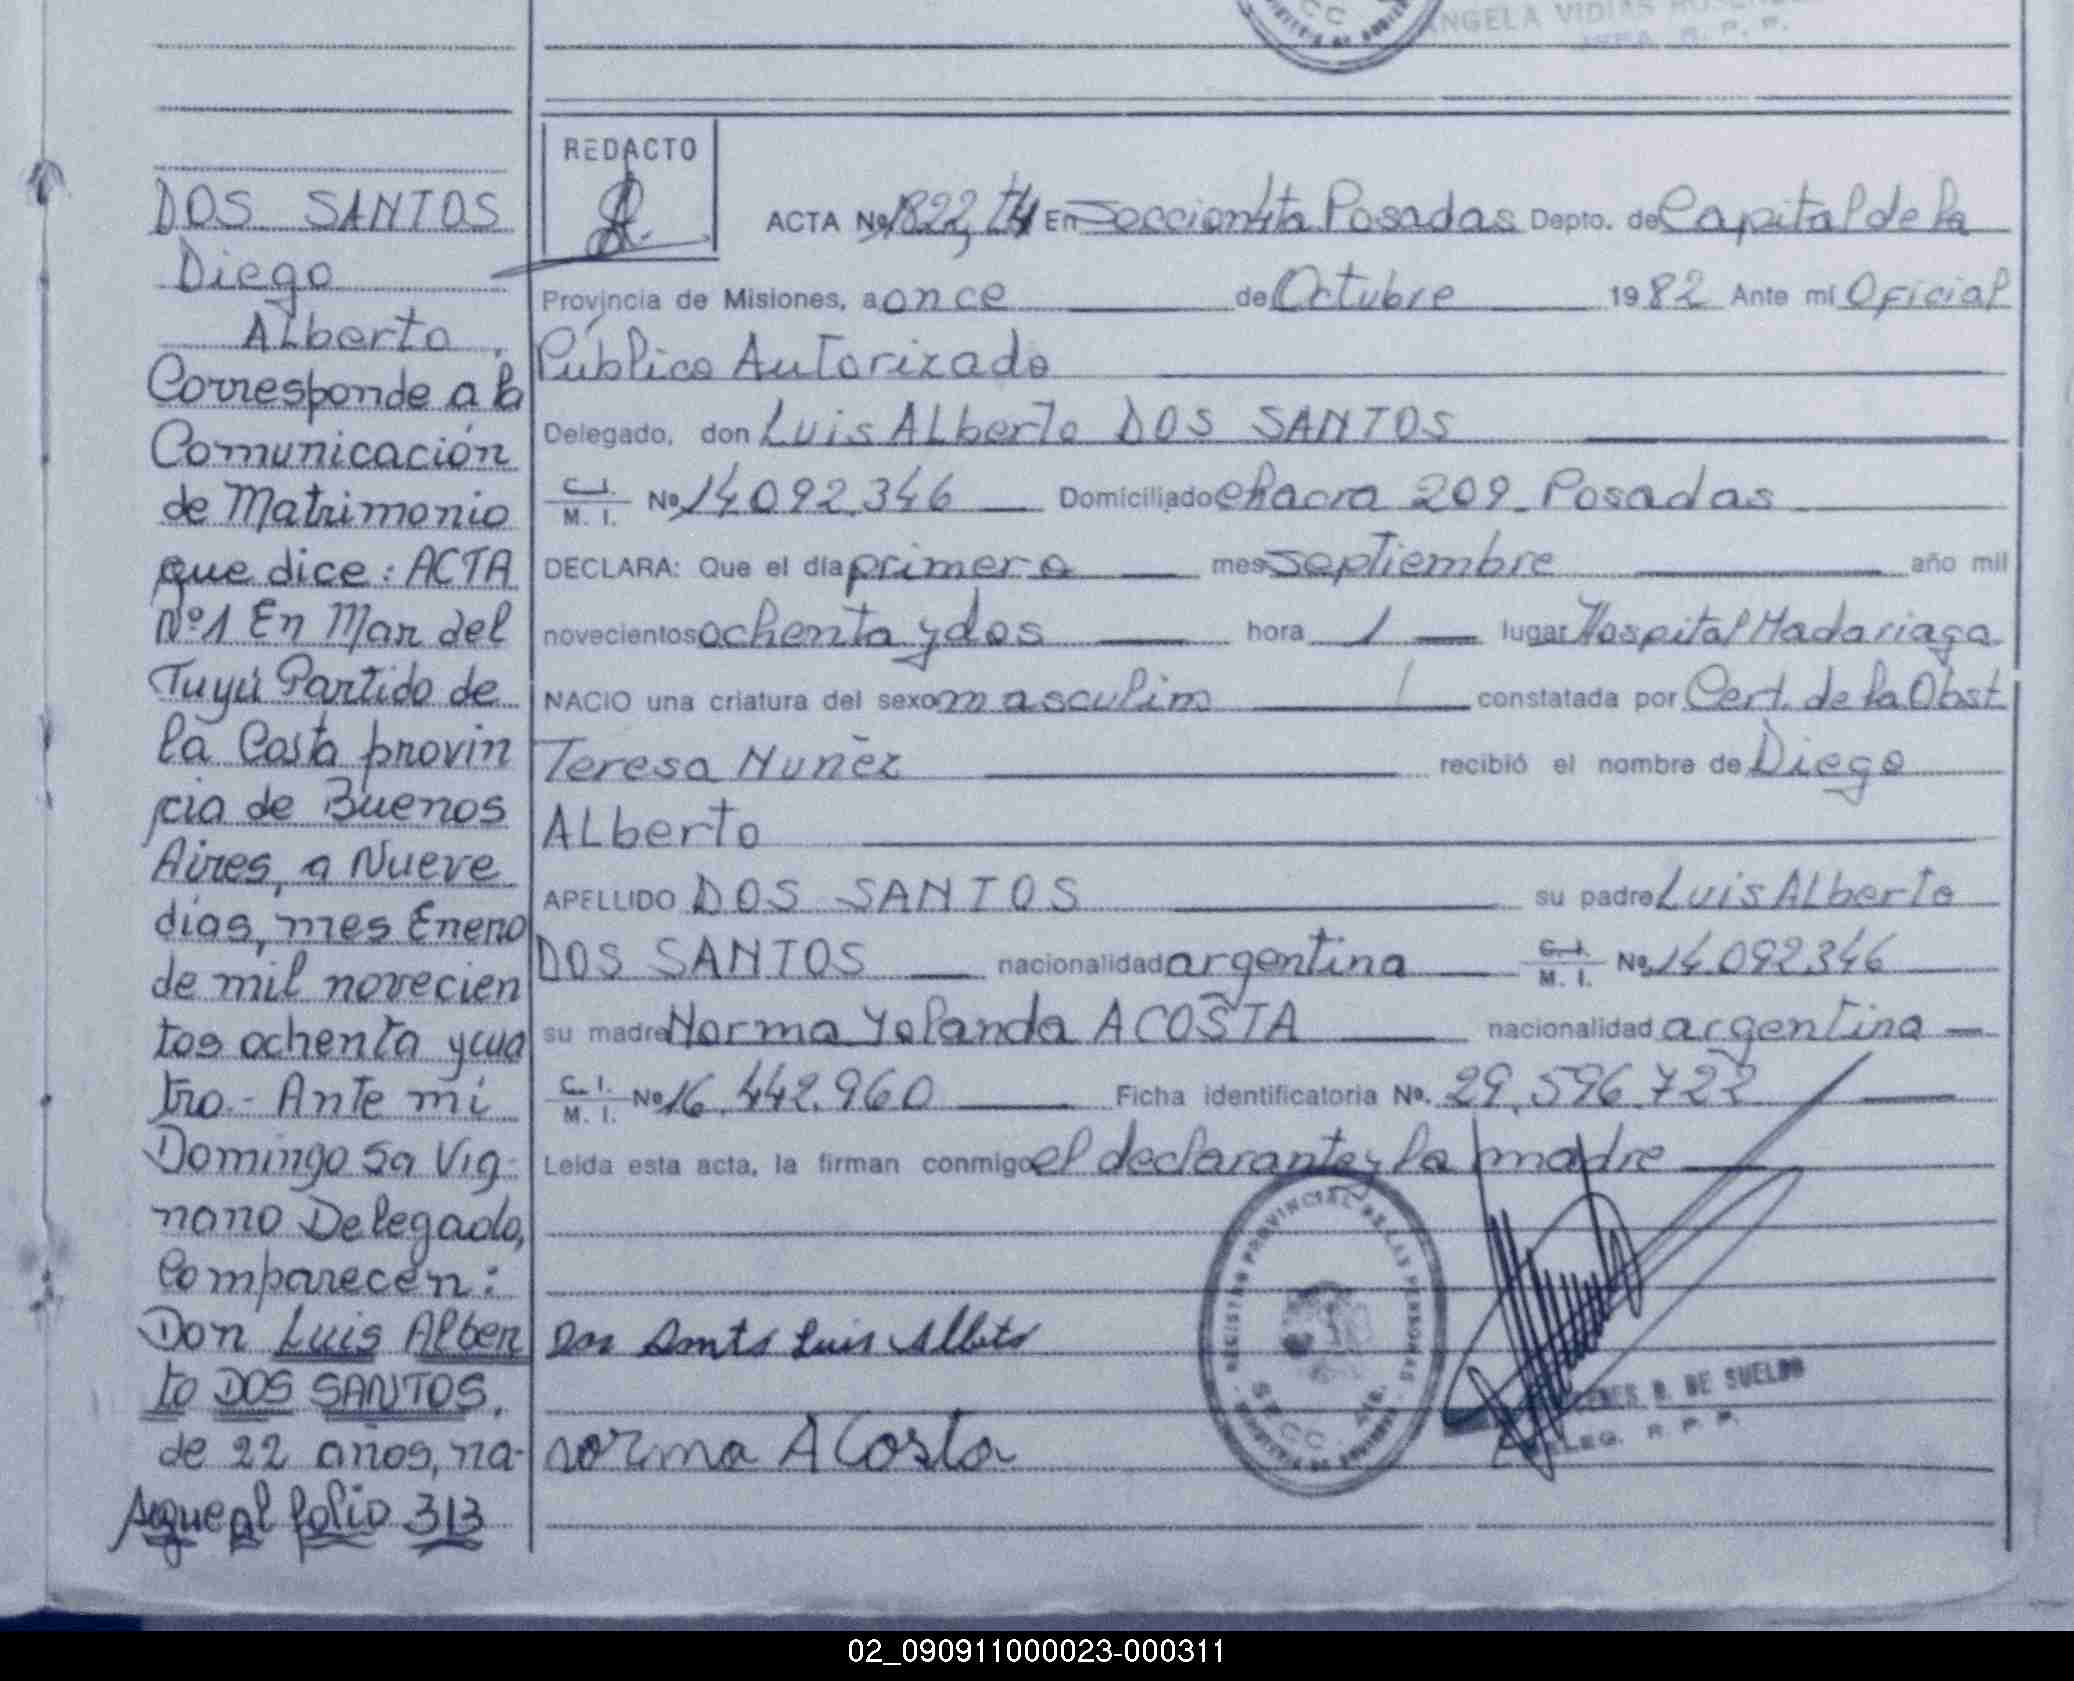 DOS SANTOS
Diego
Alberto
Corresponde a la
Comunicación
de Matrimonio
que dice: ACTA
Nº1 En Mar del
Tuyú Partido de
la Costa provin
cia de Buenos
Aires, a Nueve
días, mes Enero
de mil novecien
tos ochenta y cua
tro.- Ante mí
Domingo Sa Vig-
nono Delegado,
Comparecen:
Don Luis Alber
to DOS SANTOS,
de 22 años, na-
Sigue al folio 313
ANGELA VIDIAS
R. P. P.
REDACTO
ACTA Nº 1822, T4 En Sección 4ta Posadas Depto. de Capital de la
Provincia de Misiones, a once de Octubre 1982 Ante mí Oficial
Público Autorizado
Delegado, don Luis Alberto DOS SANTOS
C. I. / M. I. Nº 14.092.346 Domiciliado chacra 209. Posadas
DECLARA: Que el día primero mes septiembre año mil
novecientos ochenta y dos hora 1 lugar Hospital Madariaga
NACIO una criatura del sexo masculino constatada por Cert. de la Obst
Teresa Nuñez recibió el nombre de Diego
Alberto
APELLIDO DOS SANTOS su padre Luis Alberto
DOS SANTOS nacionalidad argentina C. I. / M. I. Nº 14.092.346
su madre Norma Yolanda ACOSTA nacionalidad argentina
C. I. / M. I. Nº 16.442.960 Ficha identificatoria Nº. 29.596.722
Leída esta acta, la firman conmigo el declarante y la madre
REGISTRO PROVINCIAL DE LAS PERSONAS
SECC. 4ta.
Dos Santos Luis Alberto
B. DE SUELDO
DELEG. R. P. P.
norma Acosta
02_090911000023-000311